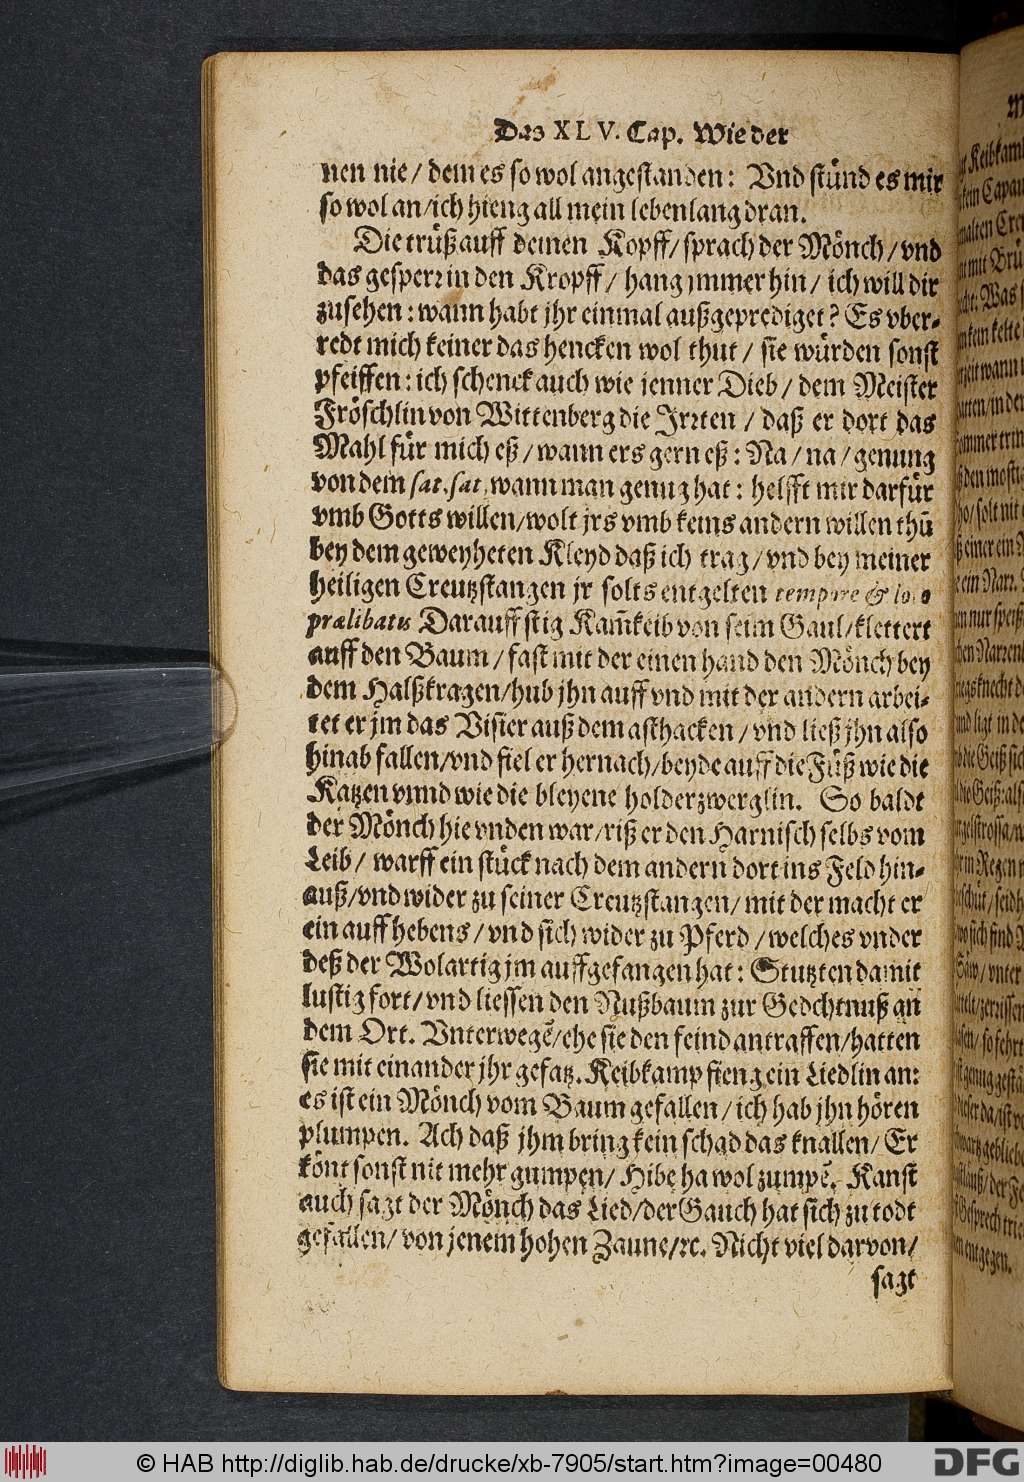 Das XLV. Cap. Wie der
nen nie / dem es so wol angestanden: Vnd stünd es mir
so wol an / ich hieng all mein lebenlang dran.
Die trüß auff deinen Kopff / sprach der Mönch / vnd
das gesperr in den Kropff / hang jmmer hin / ich will dir
zusehen: wann habt jhr einmal außgeprediget? Es vber-
redt mich keiner das hencken wol thut / sie würden sonst
pfeiffen: ich schenck auch wie jenner Dieb / dem Meister
Fröschlin von Wittenberg die Jrrten / daß er dort das
Mahl für mich eß / wann ers gern eß: Na / na / genung
von dem sat, sat, wann man genug hat: helfft mir darfür
vmb Gotts willen / wolt jrs vmb keins andern willen thũ
bey dem geweyheten Kleyd daß ich trag / vnd bey meiner
heiligen Creutzstangen jr solts entgelten tempore & loco
prælibatis Darauff stig Kam̃keib von seim Gaul / klettert
auff den Baum / fast mit der einen hand den Mönch bey
dem Halßkragen / hub jhn auff vnd mit der andern arbei-
tet er jm das Visier auß dem asthacken / vnd ließ jhn also
hinab fallen / vnd fiel er hernach / beyde auff die Füß wie die
Katzen vnnd wie die bleyene holderzwerglin. So baldt
der Mönch hie vnden war / riß er den Harnisch selbs vom
Leib / warff ein stück nach dem andern dort ins Feld hin-
auß / vnd wider zu seiner Creutzstangen / mit der macht er
ein auff hebens / vnd sich wider zu Pferd / welches vnder
deß der Wolartig jm auffgefangen hat: Stutzten damit
lustig fort / vnd liessen den Nußbaum zur Gedchtnuß an
dem Ort. Vnterwegẽ / ehe sie den feind antraffen / hatten
sie mit einander jhr gefatz. Keibkamp fieng ein Liedlin an:
es ist ein Mönch vom Baum gefallen / ich hab jhn hören
plumpen. Ach daß jhm bring kein schad das knallen / Er
könt sonst nit mehr gumpen / Hibe ha wol zumpẽ. Kanst
auch sagt der Mönch das Lied / der Gauch hat sich zu todt
gefallen / von jenem hohen Zaune / ꝛc. Nicht viel darvon /
sagt
© HAB http://diglib.hab.de/drucke/xb-7905/start.htm?image=00480
DFG